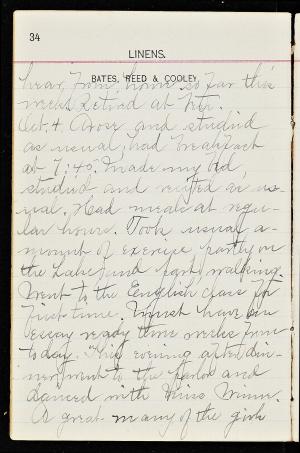 34
LINENS.
BATES, REED & COOLEY.
hear from home so far this
week. Retired at ten.
Oct. 4. Arose and studied
as usual, had breakfast
at 7:45. Made my bed,
studied and recited as us-
ual. Had meals at regu-
lar hours. Took usual a-
mount of exercise partly on
the Lake and part walking.
Went to the English class for
first time. Must have an
essay ready three weeks from
today. This evening after din-
ner went to the Parlor and
danced with Miss
A great many of the girls